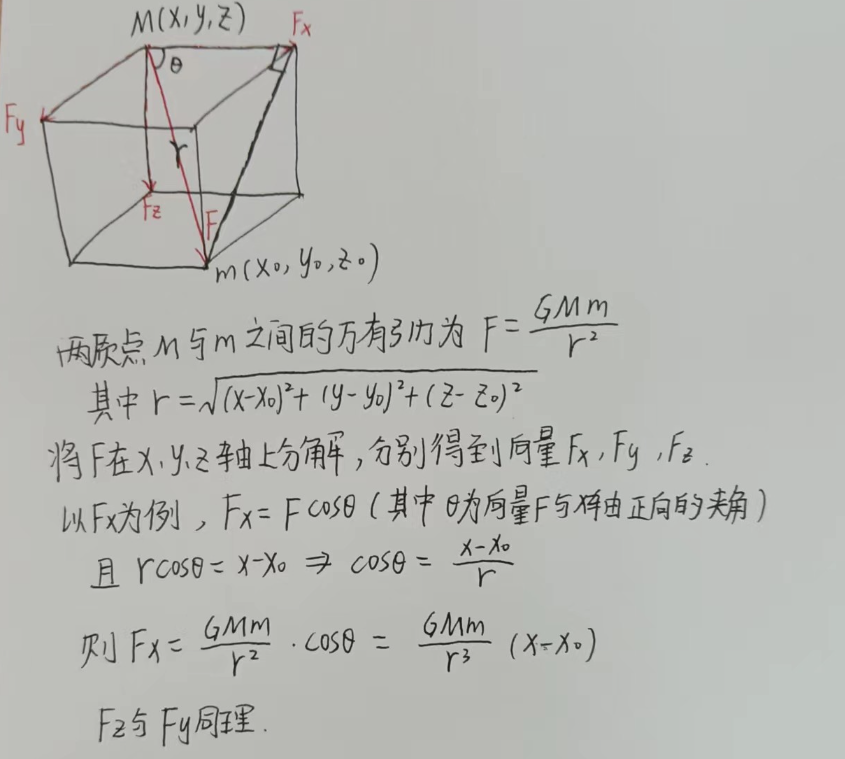 M(x,y,z)
Fx
θ
Fy
r
Fz
F
m(x₀, y₀, z₀)
两质点 M 与 m 之间的万有引力为 F = GMm/r²
其中 r = √((x-x₀)² + (y-y₀)² + (z-z₀)²)
将 F 在 x, y, z 轴上分解, 分别得到向量 Fx, Fy, Fz.
以 Fx 为例, Fx = F cosθ (其中 θ 为向量 F 与 x轴正向的夹角)
且 rcosθ = x-x₀ ⇒ cosθ = (x-x₀)/r
则 Fx = GMm/r² · cosθ = GMm/r³ (x-x₀)
Fz 与 Fy 同理.